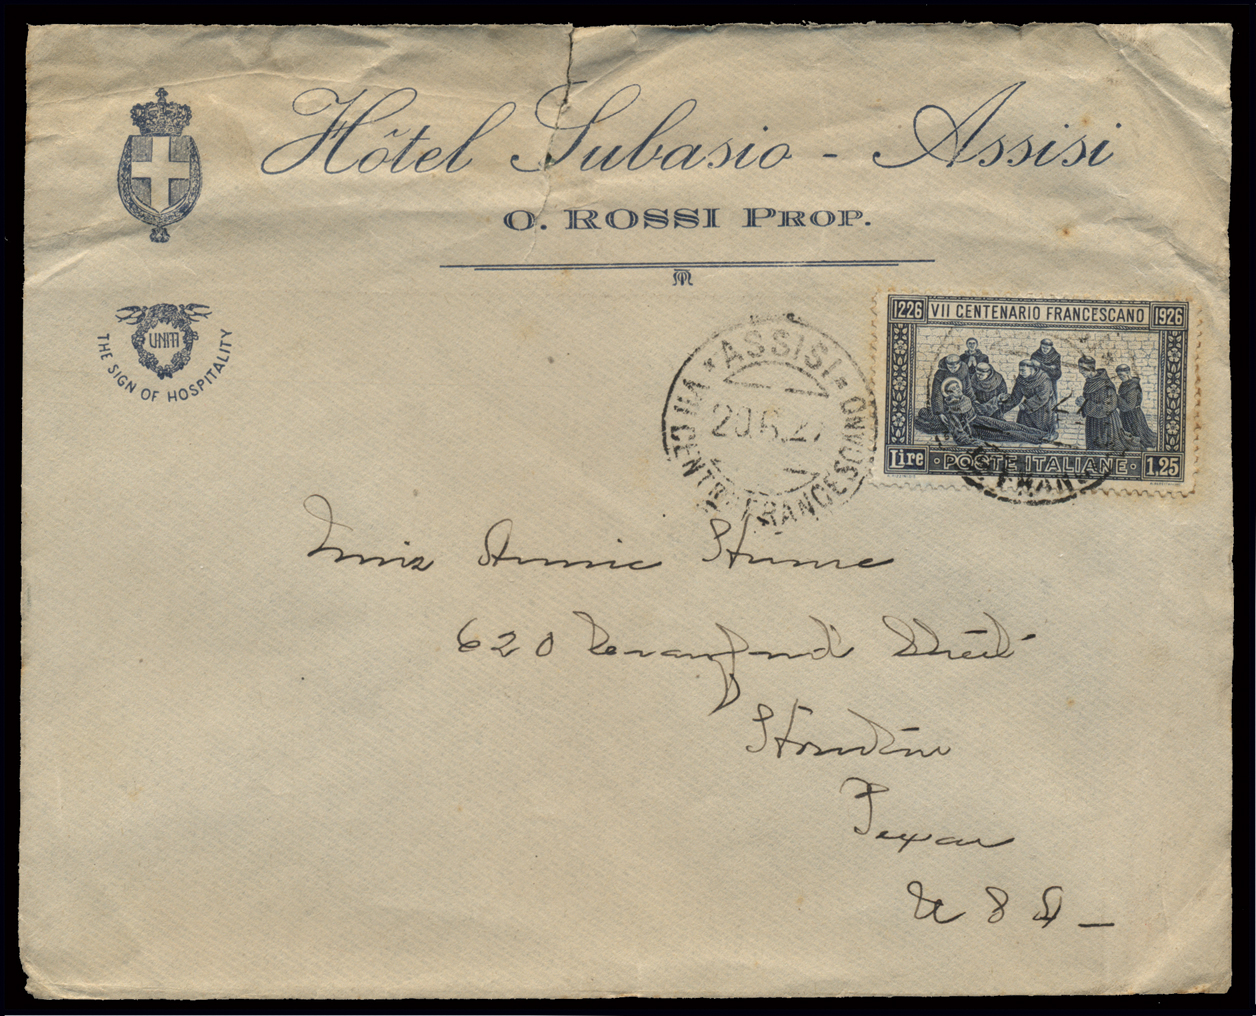 Hôtel Subasio - Assisi
O. ROSSI PROP.
UNITI
THE SIGN OF HOSPITALITY
* ASSISI *
VII CENTR. FRANCESCANO
20.6.27
1226 VII CENTENARIO FRANCESCANO 1926
Lire · POSTE ITALIANE · 1,25
Miss Annie Hume
620 Street
Houston
Texas
U S A